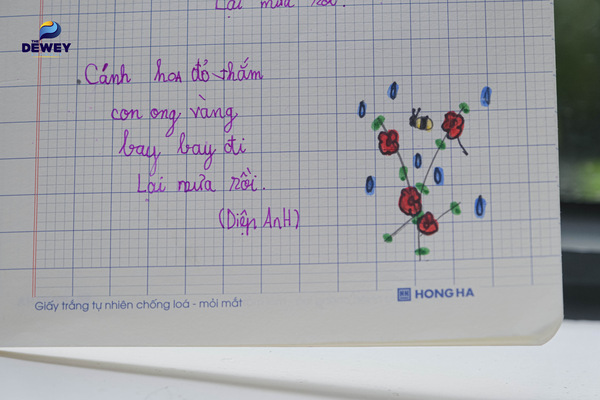 THE
DEWEY
Lại mưa rồi.
Cánh hoa đỏ thắm
con ong vàng
bay bay đi
Lại mưa rồi.
(Diệp Anh)
Giấy trắng tự nhiên chống loá - mỏi mắt
HONG HA